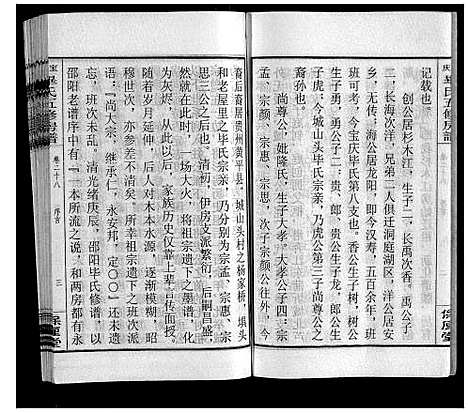 记载也。
创公居杉木江，生子二，长禹次香，禹公子
二，长海次洋，兄弟二人俱迁洞庭湖区，洋公居安
乡，无传，海公居龙阳，即今汉寿，五百余年，班
班可考，今宝庆毕氏第八支也。香公生子树，树公
生子勇，勇公生子二：贵、郎，贵公生子龙，郎公生
子虎，今城山头毕氏宗亲，乃虎公第三子尚尊公之
裔孙也。
尚尊公，妣隆氏，生子大孝，大孝公子四：宗
孟、宗颜、宗惠、宗思，次子宗颜公往外，今
裔后裔居贵州黄平县。城山头村之杨家桥、埧头
和老屋里之毕氏宗亲，乃分别为宗孟、宗惠、宗
思三公之后也。初清，伊房文派繁衍，后嗣昌盛
然就在此时，一场大火，将祖宗遗下之墨谱，化
为灰烬，从此以后，家族历史仅靠上辈言传面授。
随着岁月延伸，后人对木本水源，逐渐模糊，昭
穆世次，亦不清矣。所幸祖宗遗下之班次派
语：“尚大宗，继承仁，永安邦，定〇〇”还未遗
忘，班次未乱。清光绪庚辰，邵阳毕氏修谱，以
邵阳老谱序中有：“本所流之说，和两房都有永
毕氏五修房谱
卷二十八
序言
三
保厘堂
毕氏五修房谱
保厘堂